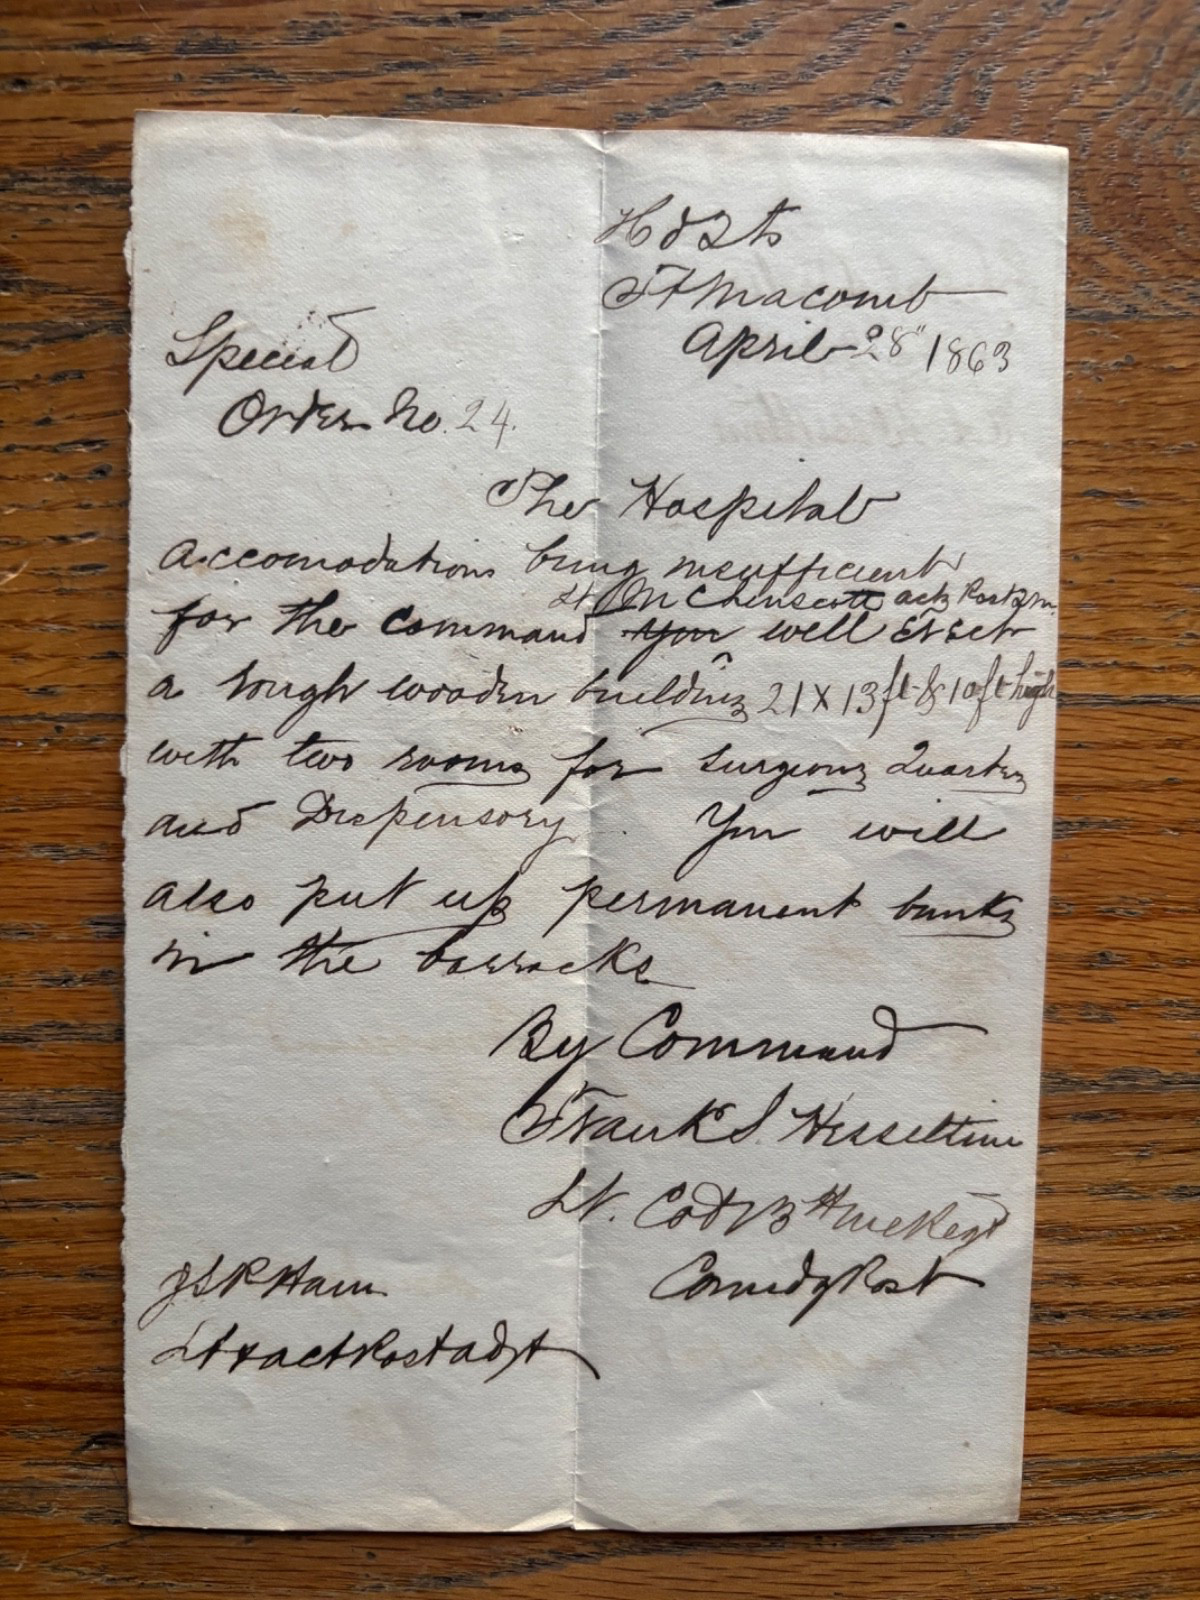 Hd Qts
Ft Macomb
April 28" 1863
Special
Order No. 24.
The Hospital
accomodations being insufficient
Lt act Post Qm.
for the command you will erect
a rough wooden building 21 x 13 ft & 10 ft high
with two rooms for Surgeons Quarters
and Dispensory. You will
also put up permanent bunks
in the barracks
By Command
Frank S. Hesseltine
Lt. Col 13th Me Regt
Comdg Post
J S P Ham
Lt & act Post adjt